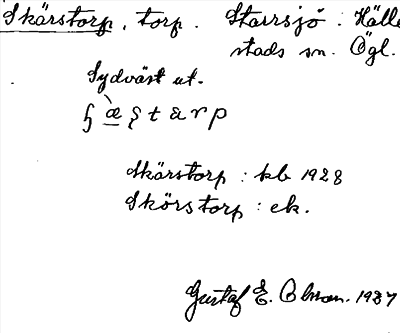 Skärstorp, torp. Starrsjö : Hälle-
stads sn. Ögl.
Sydväst ut.
ʃæ̀ʂtarp
Skärstorp : kb 1928
Skörstorp : ek.
Gustaf E. Olsson. 1937